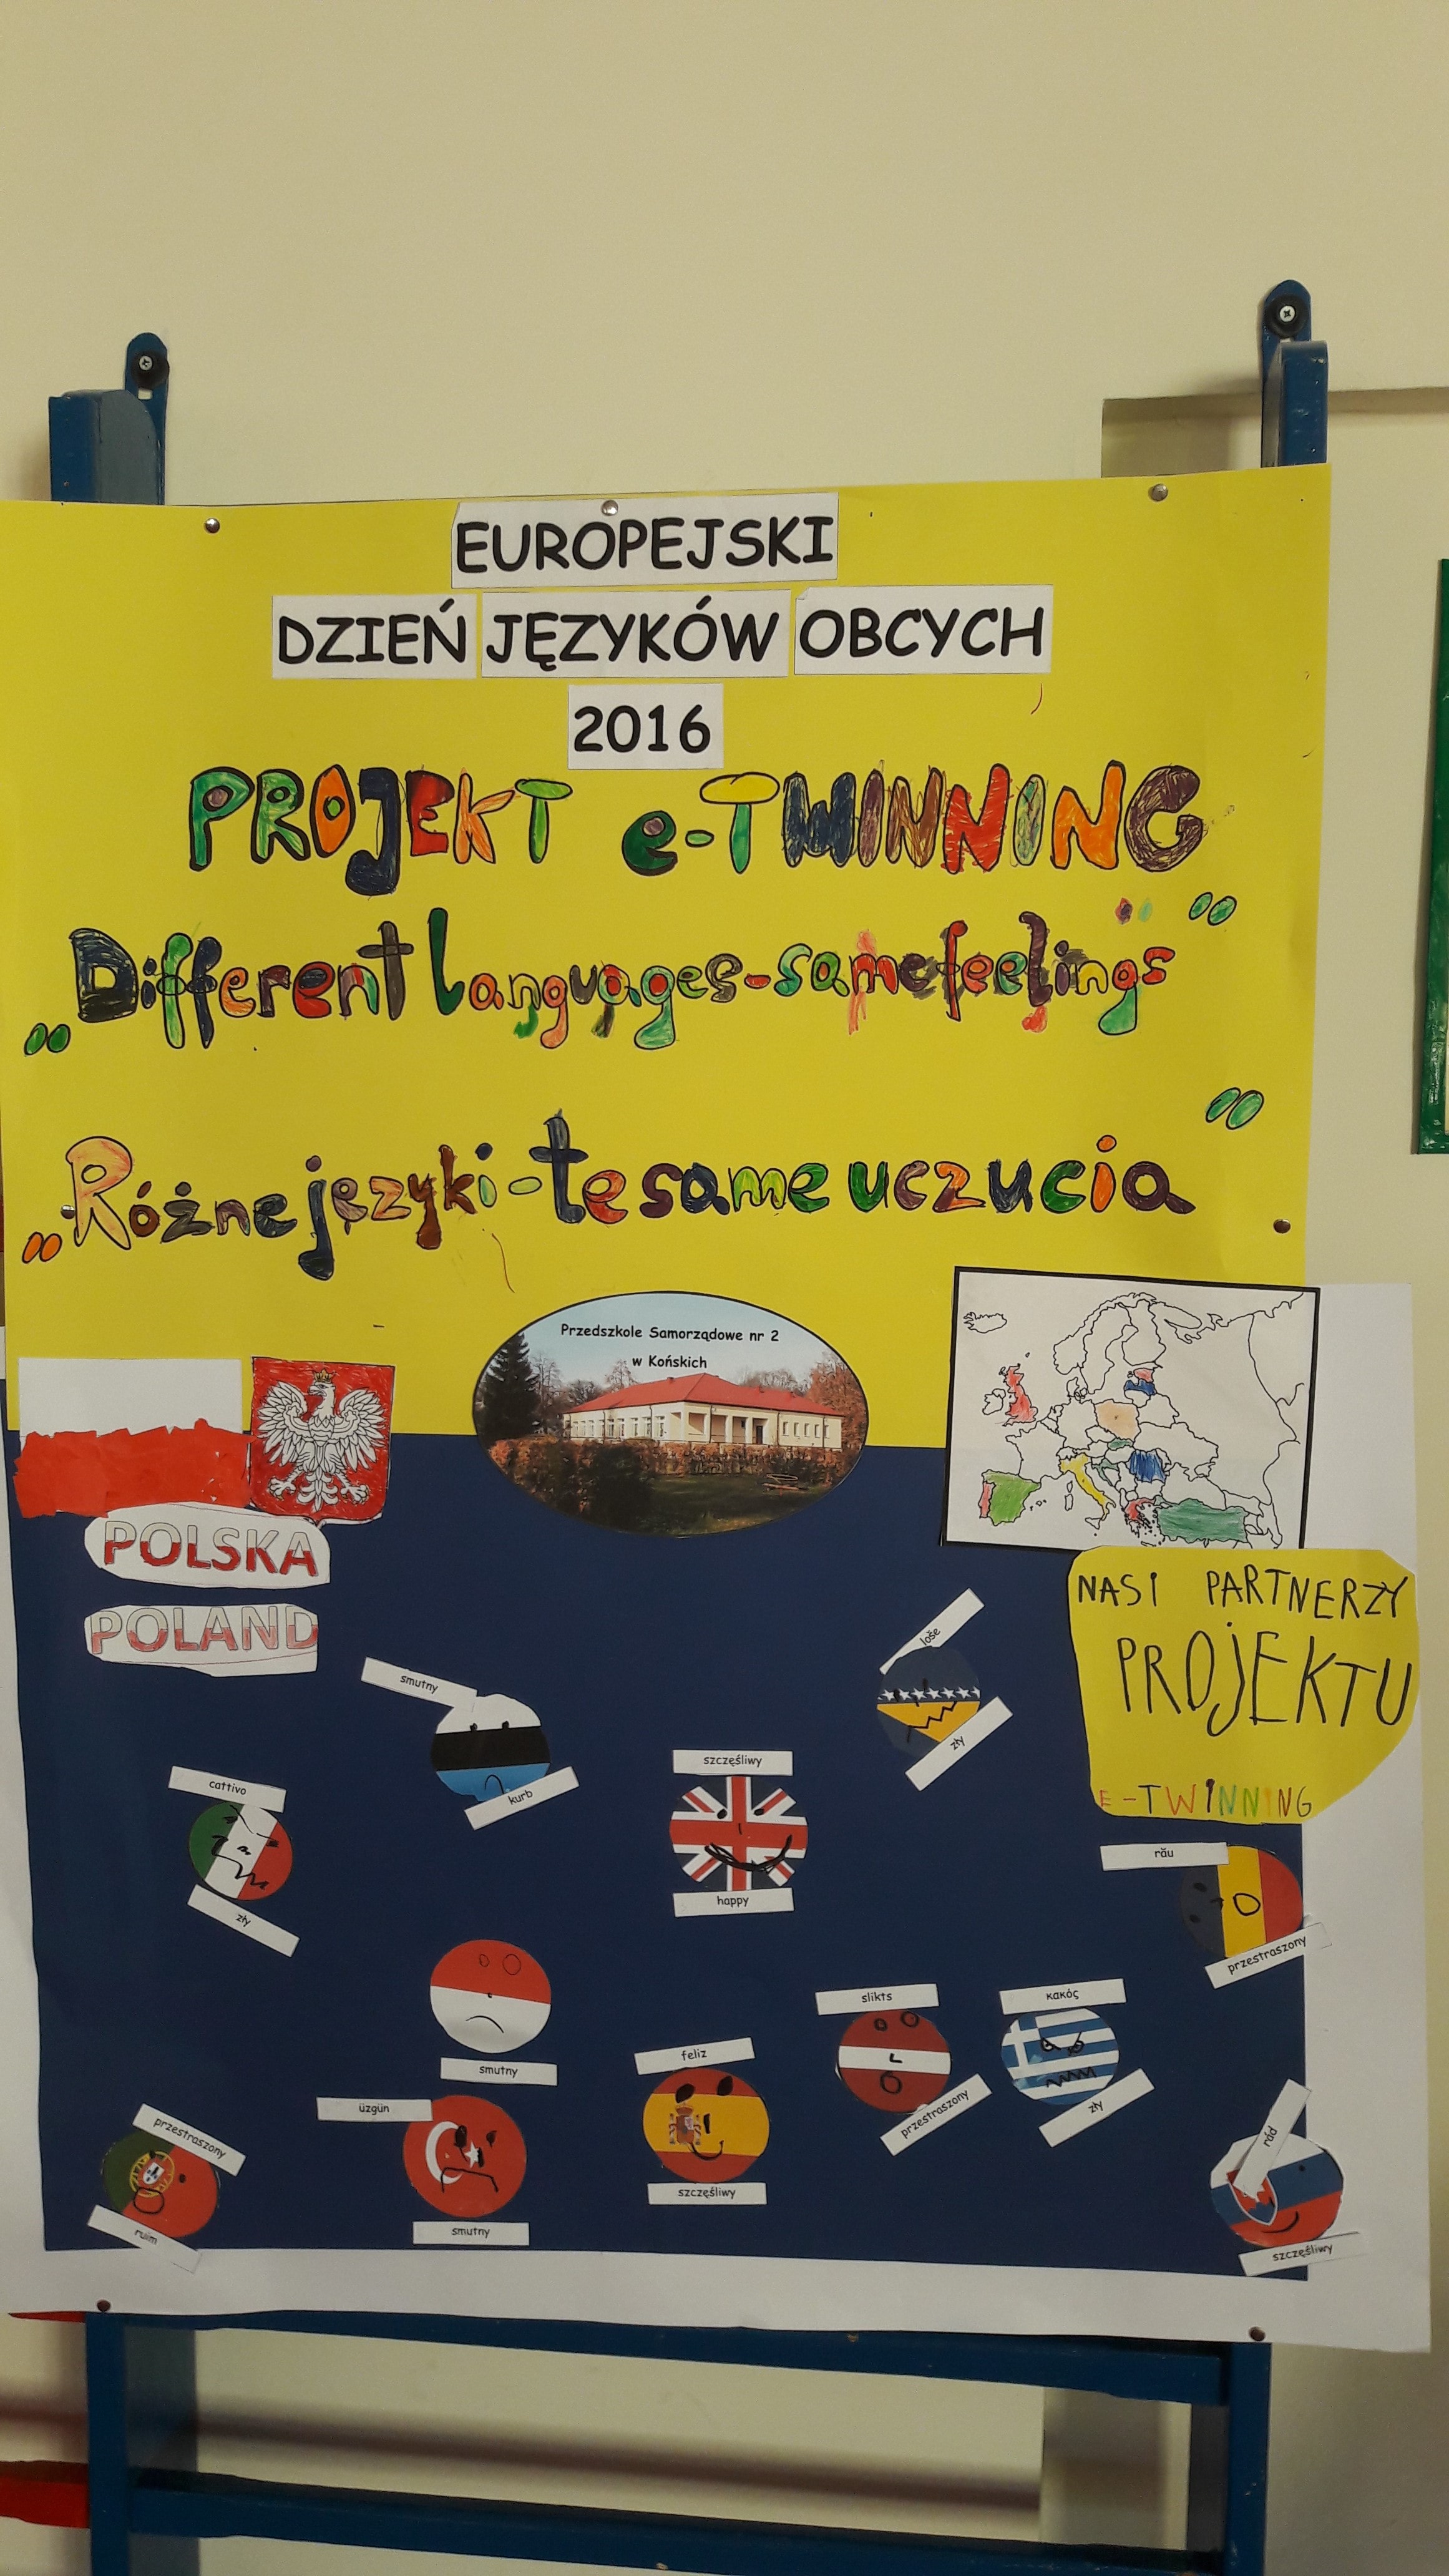 EUROPEJSKI
DZIEŃ JĘZYKÓW OBCYCH
2016
PROJEKT e-TWINNING
„Different languages-same feelings”
„Różne języki-te same uczucia”
Przedszkole Samorządowe nr 2
w Końskich
POLSKA
POLAND
NASI PARTNERZY
PROJEKTU
E-TWINNING
smutny
kurb
loše
zły
cattivo
zły
szczęśliwy
happy
rău
przestraszony
smutny
slikts
przestraszony
κακός
zły
feliz
szczęśliwy
üzgün
smutny
przestraszony
ruim
rád
szczęśliwy